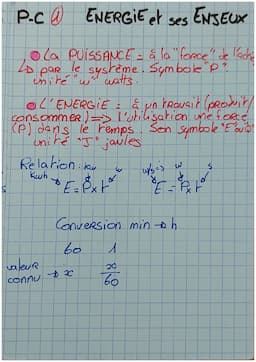 P-C ① ENERGIE et ses ENJEUX
La PUISSANCE = à la "force" de
par le système. Symbole "P"
unité "W" watts.
L'ENERGIE = à un travail (produit/
consommer) => l'utilisation une force
(P) dans le temps. Son symbole "E"
unité "J" joules
Relation : kW h W/s W s
kWh → E = P x t E = P x t
Conversion min → h
60 1
valeur
connu → x x/60